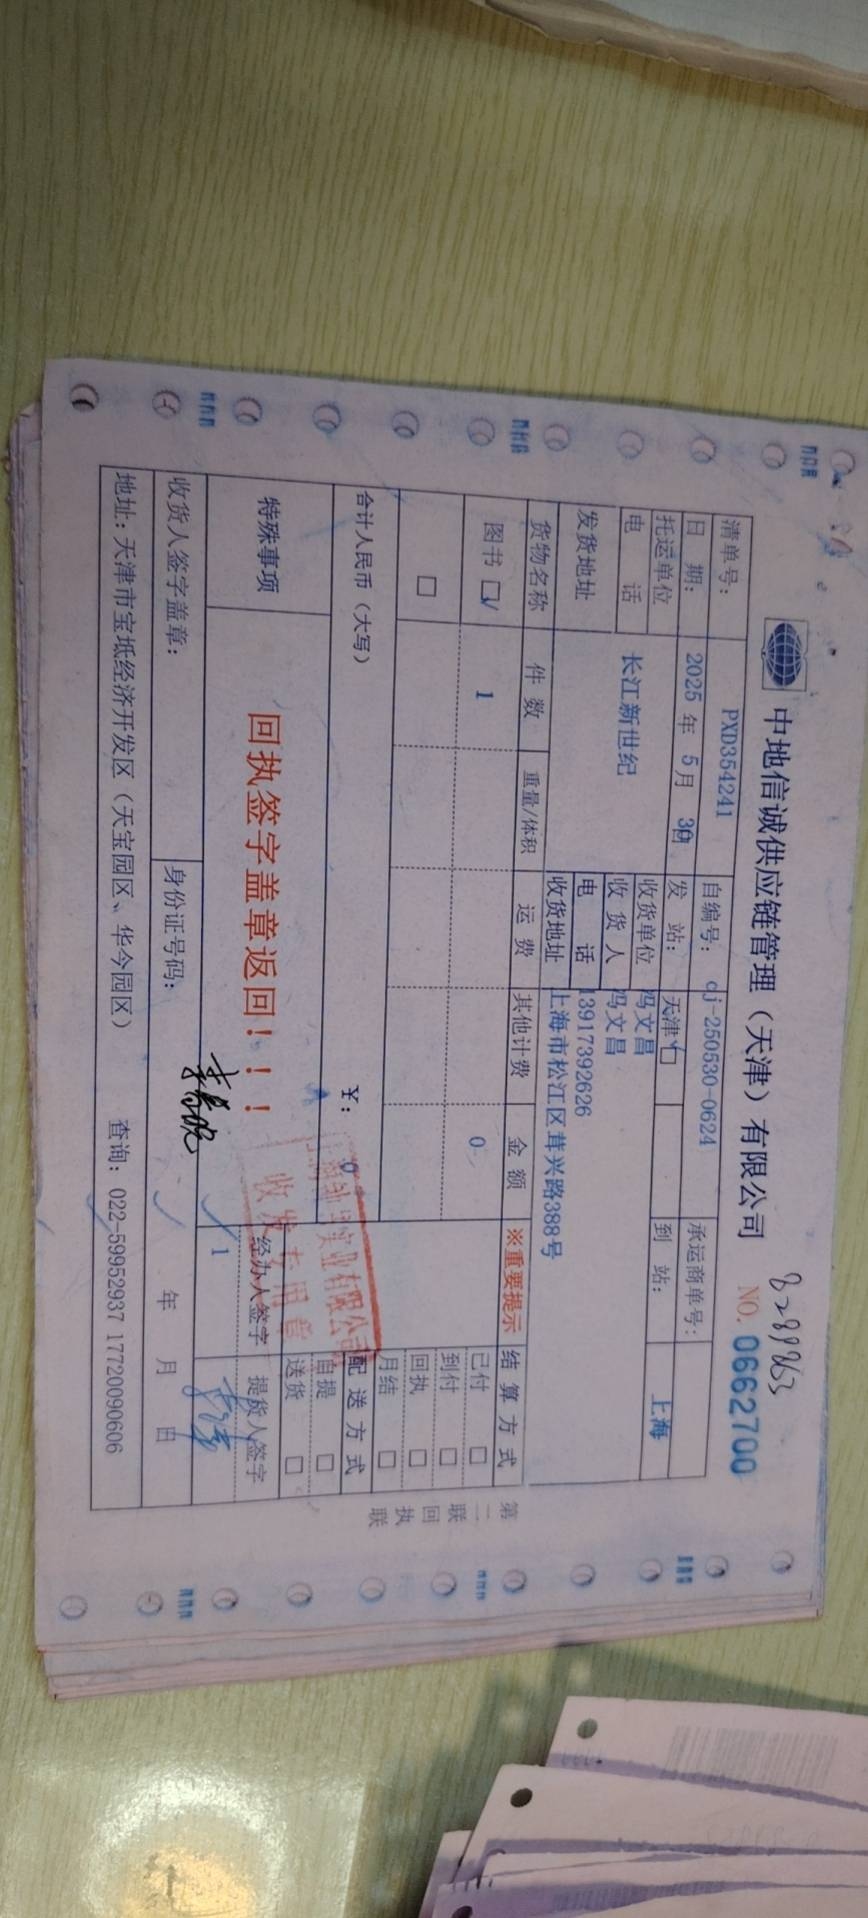 8289863
中地信诚供应链管理（天津）有限公司 NO. 0662700
清单号： PXD354241 自编号： cj-250530-0624 承运商单号：
日 期： 2025 年 5 月 30日 发 站： 天津 □ 到 站： 上海
托运单位 长江新世纪 收货单位 冯文昌
电 话 收 货 人 冯文昌
电 话 13917392626
发货地址 收货地址 上海市松江区茸兴路388号
货物名称 件 数 重量/体积 运 费 其他计费 金 额 ※重要提示 结 算 方 式
图书 □√ 1 0 已付 □
到付 □
□ 回执 □
月结 □
合计人民币（大写） ￥： 0 配 送 方 式
自提 □
送货 □
特殊事项 回执签字盖章返回！！！ 经办人签字 提货人签字
1
实业有限公司
收发专用章
收货人签字盖章： 身份证号码： 年 月 日
地址：天津市宝坻经济开发区（天宝园区、华今园区） 查询：022-59952937 17720090606
第二联 回执联